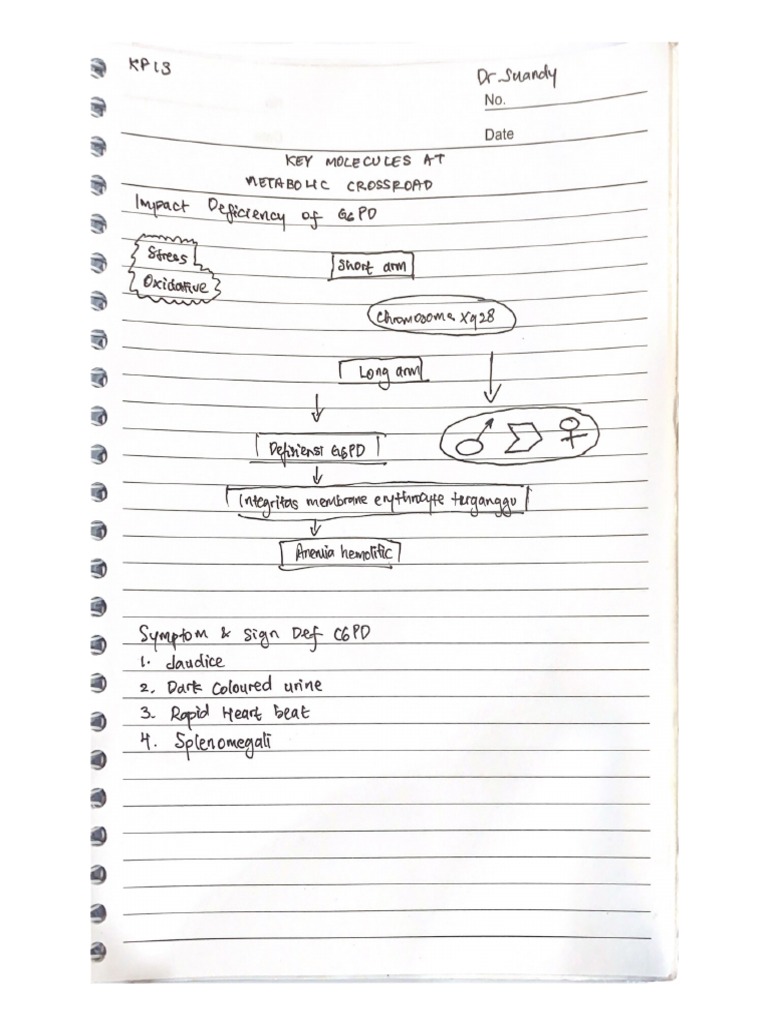 KP13
Dr. Suandy
No.
Date
KEY MOLECULES AT
METABOLIC CROSSROAD
Impact Deficiency of G6PD
Stress
Oxidative
Short arm
Chromosoma Xq28
Long arm
Defisiensi G6PD
Integritas membrane erythrocyte terganggu
Anemia hemolitic
Symptom & Sign Def G6PD
1. Jaudice
2. Dark Coloured urine
3. Rapid Heart beat
4. Splenomegali